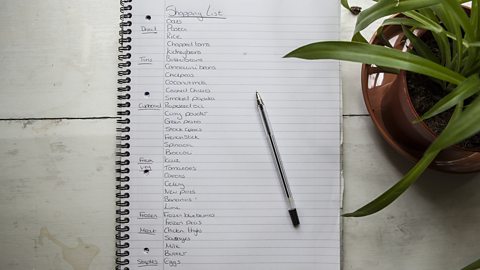 Shopping List
Oats
Dried Pasta
Rice
Chopped toms
Kidney beans
Tins Butter beans
Cannellini beans
Chickpeas
Coconut milk
Smoked paprika
Cupboard Rapeseed oil
Curry powder
Green pesto
Stock cubes
French stick
Spinach
Broccoli
Fresh Kale
Veg Tomatoes
Carrots
Celery
New pots
Bananas
Lime
Frozen Frozen blueberries
Frozen peas
Meat Chicken thighs
Sausages
Milk
Butter
Staples Eggs